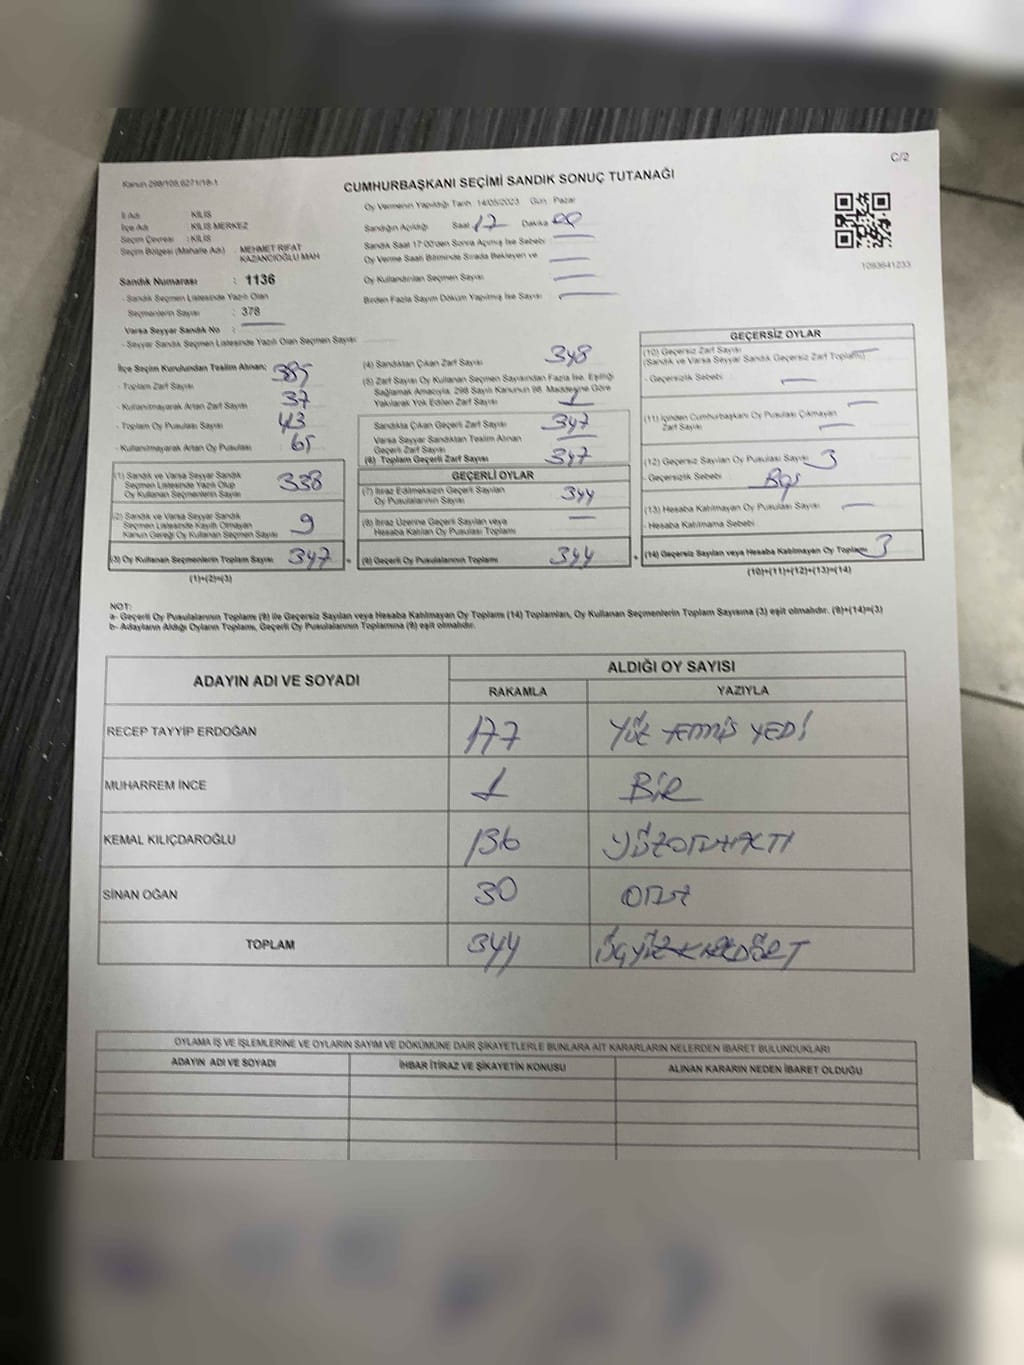 C/2
Kanun 298/105,6271/19-1
CUMHURBAŞKANI SEÇİMİ SANDIK SONUÇ TUTANAĞI
İl Adı : KİLİS
İlçe Adı : KİLİS MERKEZ
Seçim Çevresi : KİLİS
Seçim Bölgesi (Mahalle Adı) : MEHMET RIFAT KAZANCIOĞLU MAH
Sandık Numarası : 1136
- Sandık Seçmen Listesinde Yazılı Olan
Seçmenlerin Sayısı : 378
Varsa Seyyar Sandık No :
- Seyyar Sandık Seçmen Listesinde Yazılı Olan Seçmen Sayısı
Oy Vermenin Yapıldığı Tarih 14/05/2023 Gün Pazar
Sandığın Açıldığı Saat 17 Dakika 00
Sandık Saat 17:00'den Sonra Açılmış İse Sebebi
Oy Verme Saati Bitiminde Sırada Bekleyen ve
Oy Kullandırılan Seçmen Sayısı
Birden Fazla Sayım Döküm Yapılmış İse Sayısı
1093641233
İlçe Seçim Kurulundan Teslim Alınan;
- Toplam Zarf Sayısı 385
- Kullanılmayarak Artan Zarf Sayısı 37
- Toplam Oy Pusulası Sayısı
- Kullanılmayarak Artan Oy Pusulası 65
(1) Sandık ve Varsa Seyyar Sandık
Seçmen Listesinde Yazılı Olup
Oy Kullanan Seçmenlerin Sayısı 338
(2) Sandık ve Varsa Seyyar Sandık
Seçmen Listesinde Kayıtlı Olmayan
Kanun Gereği Oy Kullanan Seçmen Sayısı 9
(3) Oy Kullanan Seçmenlerin Toplam Sayısı 347
(1)+(2)=(3)
(4) Sandıktan Çıkan Zarf Sayısı 348
(5) Zarf Sayısı Oy Kullanan Seçmen Sayısından Fazla İse, Eşitliği
Sağlamak Amacıyla, 298 Sayılı Kanunun 98. Maddesine Göre
Yakılarak Yok Edilen Zarf Sayısı 1
Sandıkta Çıkan Geçerli Zarf Sayısı 347
Varsa Seyyar Sandıktan Teslim Alınan
Geçerli Zarf Sayısı
(6) Toplam Geçerli Zarf Sayısı 347
GEÇERLİ OYLAR
(7) İtiraz Edilmeksizin Geçerli Sayılan
Oy Pusulalarının Sayısı 344
(8) İtiraz Üzerine Geçerli Sayılan veya
Hesaba Katılan Oy Pusulası Toplamı
(9) Geçerli Oy Pusulalarının Toplamı 344
GEÇERSİZ OYLAR
(10) Geçersiz Zarf Sayısı
(Sandık ve Varsa Seyyar Sandık Geçersiz Zarf Toplamı)
- Geçersizlik Sebebi
(11) İçinden Cumhurbaşkanı Oy Pusulası Çıkmayan
Zarf Sayısı
(12) Geçersiz Sayılan Oy Pusulası Sayısı 3
- Geçersizlik Sebebi Boş
(13) Hesaba Katılmayan Oy Pusulası Sayısı
- Hesaba Katılmama Sebebi
(14) Geçersiz Sayılan veya Hesaba Katılmayan Oy Toplamı 3
(10)+(11)+(12)+(13)=(14)
NOT:
a- Geçerli Oy Pusulalarının Toplamı (9) ile Geçersiz Sayılan veya Hesaba Katılmayan Oy Toplamı (14) Toplamları, Oy Kullanan Seçmenlerin Toplam Sayısına (3) eşit olmalıdır. (9)+(14)=(3)
b- Adayların Aldığı Oyların Toplamı, Geçerli Oy Pusulalarının Toplamına (9) eşit olmalıdır.
ADAYIN ADI VE SOYADI ALDIĞI OY SAYISI
RAKAMLA YAZIYLA
RECEP TAYYİP ERDOĞAN 177 YÜZ YETMİŞ YEDİ
MUHARREM İNCE 1 BİR
KEMAL KILIÇDAROĞLU 136 YÜZOTUZALTI
SİNAN OĞAN 30 OTUZ
TOPLAM 344 ÜÇYÜZKIRKDÖRT
OYLAMA İŞ VE İŞLEMLERİNE VE OYLARIN SAYIM VE DÖKÜMÜNE DAİR ŞİKAYETLERLE BUNLARA AİT KARARLARIN NELERDEN İBARET BULUNDUKLARI
ADAYIN ADI VE SOYADI İHBAR İTİRAZ VE ŞİKAYETİN KONUSU ALINAN KARARIN NEDEN İBARET OLDUĞU